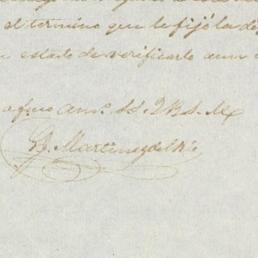 el termino que le fijó la de
estado de verificarlo aun
afmo am.º S.S. Q.B.S.M.
J. Martinez del Rio